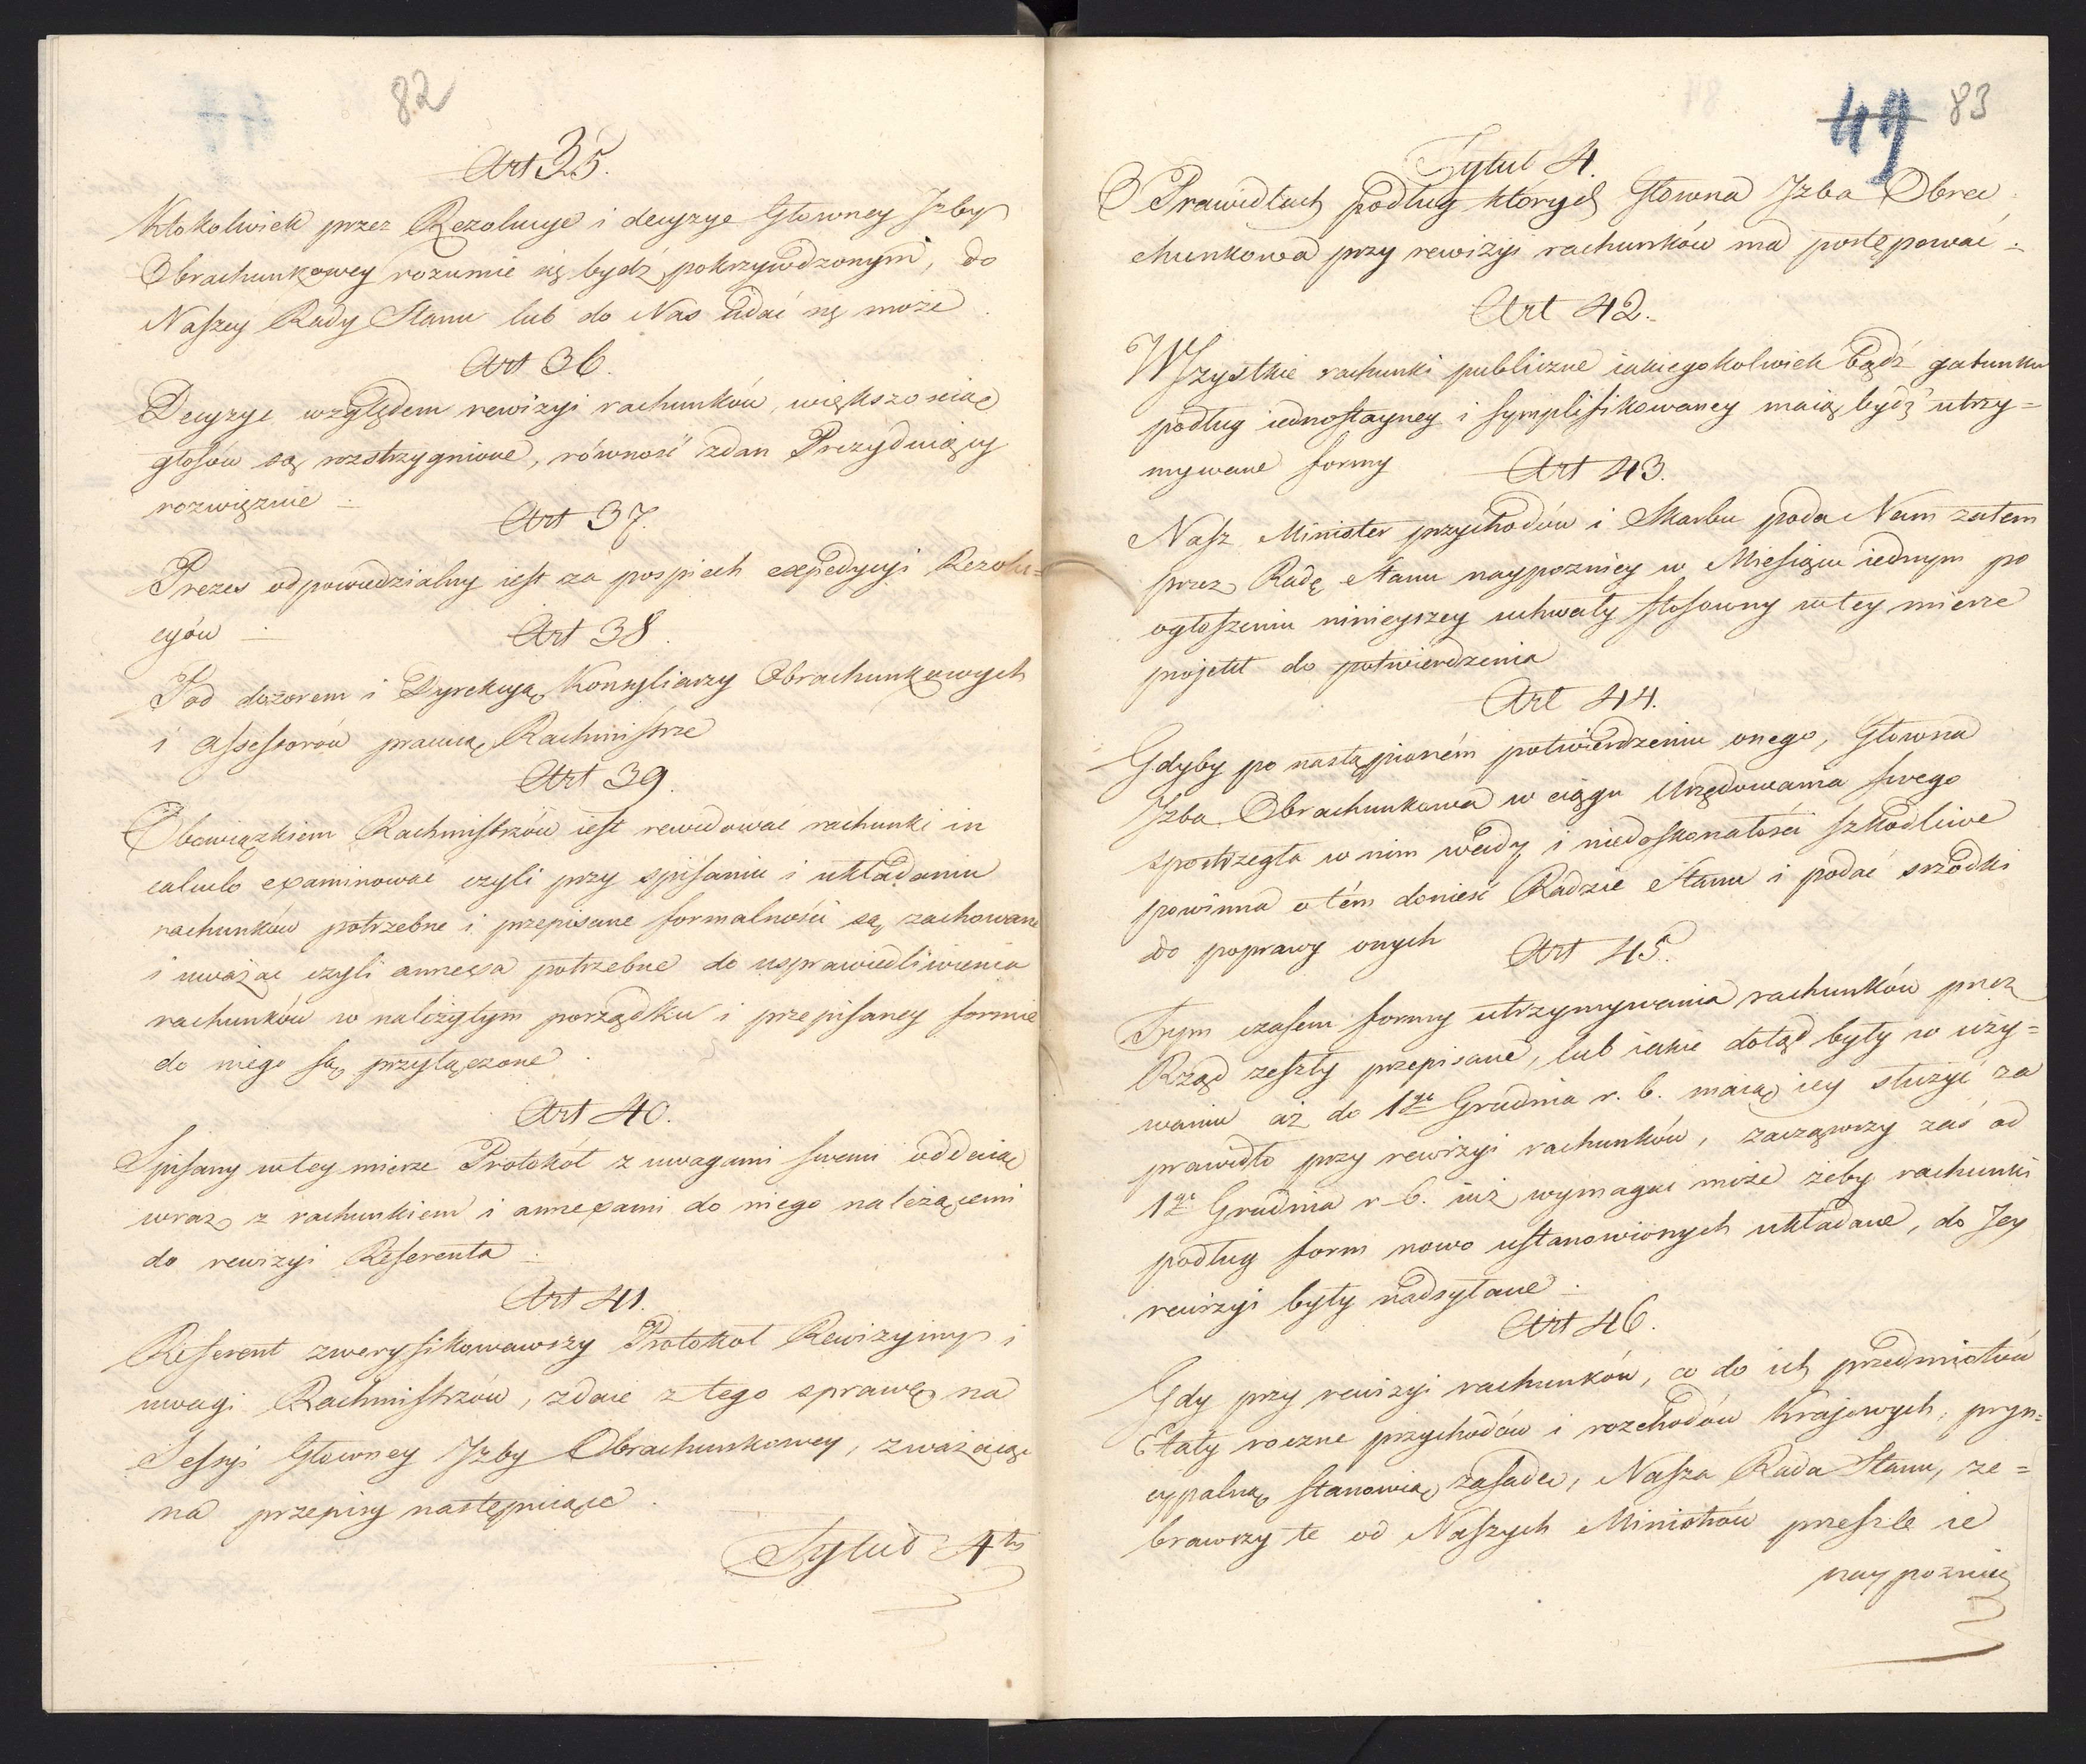 82
Art 35.
Ktokolwiek przez Rezolucye i decyzye Głowney Jzby
Obrachunkowey rozumie się bydź pokrzywdzonym, do
Naszey Rady Stanu lub do Nas udać się może
Art 36.
Decyzye względem rewizyi rachunków, większoscią
głosów są rozstrzygnione, równość zdan Prezyduiący
rozwiąznie
Art 37.
Prezes odpowiedzialny iest za pospiech expedycyi Rezolu=
cyów
Art 38.
Pod dozorem i Dyrekcyą Konsyliarzy Obrachunkowych
i Assessorów pracuią Rachmistrze
Art 39.
Obowiązkiem Rachmistrzów iest rewidować rachunki in
calculo examinować czyli przy spisaniu i układaniu
rachunków potrzebne i przepisane formalności są zachowane
i uważać czyli annexa potrzebne do usprawiedliwienia
rachunków w należytym porządku i przepisaney formie
do niego są przyłączone
Art 40.
Spisany w tey mierze Protokół z uwagami swemi oddaią
wraz z rachunkiem i annexami do niego należącemi
do rewizyi Referenta
Art 41.
Referent zweryfikowawszy Protokoł Rewizyiny i
uwagi Rachmistrzów, zdaie z tego sprawę na
Sessyi Głowney Jzby Obrachunkowey, zważaiąc
na przepisy następuiące
Tytuł 4ty
49 83
Tytuł 4.
O Prawidłach podług których Głowna Jzba Obra
chunkowa przy rewizyi rachunków ma postępować
Art 42.
Wszystkie rachunki publiczne iakiegokolwiek bądź gatunku
podług iednostayney i symplifikowaney maią bydź utrzy=
mywane formy
Art 43.
Nasz Minister przychodów i Skarbu poda Nam zatem
przez Radę Stanu naypozniey w Miesiącu iednym po
ogłoszeniu ninieyszey uchwały stosowny w tey mierze
projekt do potwierdzenia
Art 44.
Gdyby po nastąpioném potwierdzeniu onego, Głowna
Jzba Obrachunkowa w ciągu Urzędowania swego
spostrzegła w nim wady i niedoskonałości szkodliwe
powinna o tém donieść Radzie Stanu i podać srzodki
do poprawy onych
Art 45.
Tym czasem formy utrzymywania rachunków przez
Rząd zeszły przepisane, lub iakie dotąd były w uży=
waniu aż do 1go Grudnia r. b. maią iey służyć za
prawidło przy rewizyi rachunków, zacząwszy zaś od
1go Grudnia r. b. iuż wymagać może żeby rachunki
podług form nowo ustanowionych układane, do Jey
rewizyi były nadsyłane
Art 46.
Gdy przy rewizyi rachunków, co do ich przedmiotów
Etaty roczne przychodów i rozchodów Krajowych, pryn=
cypalną stanowią zasadę, Nasza Rada Stanu, ze=
brawszy te od Naszych Ministrów przeszle ie
naypozniey